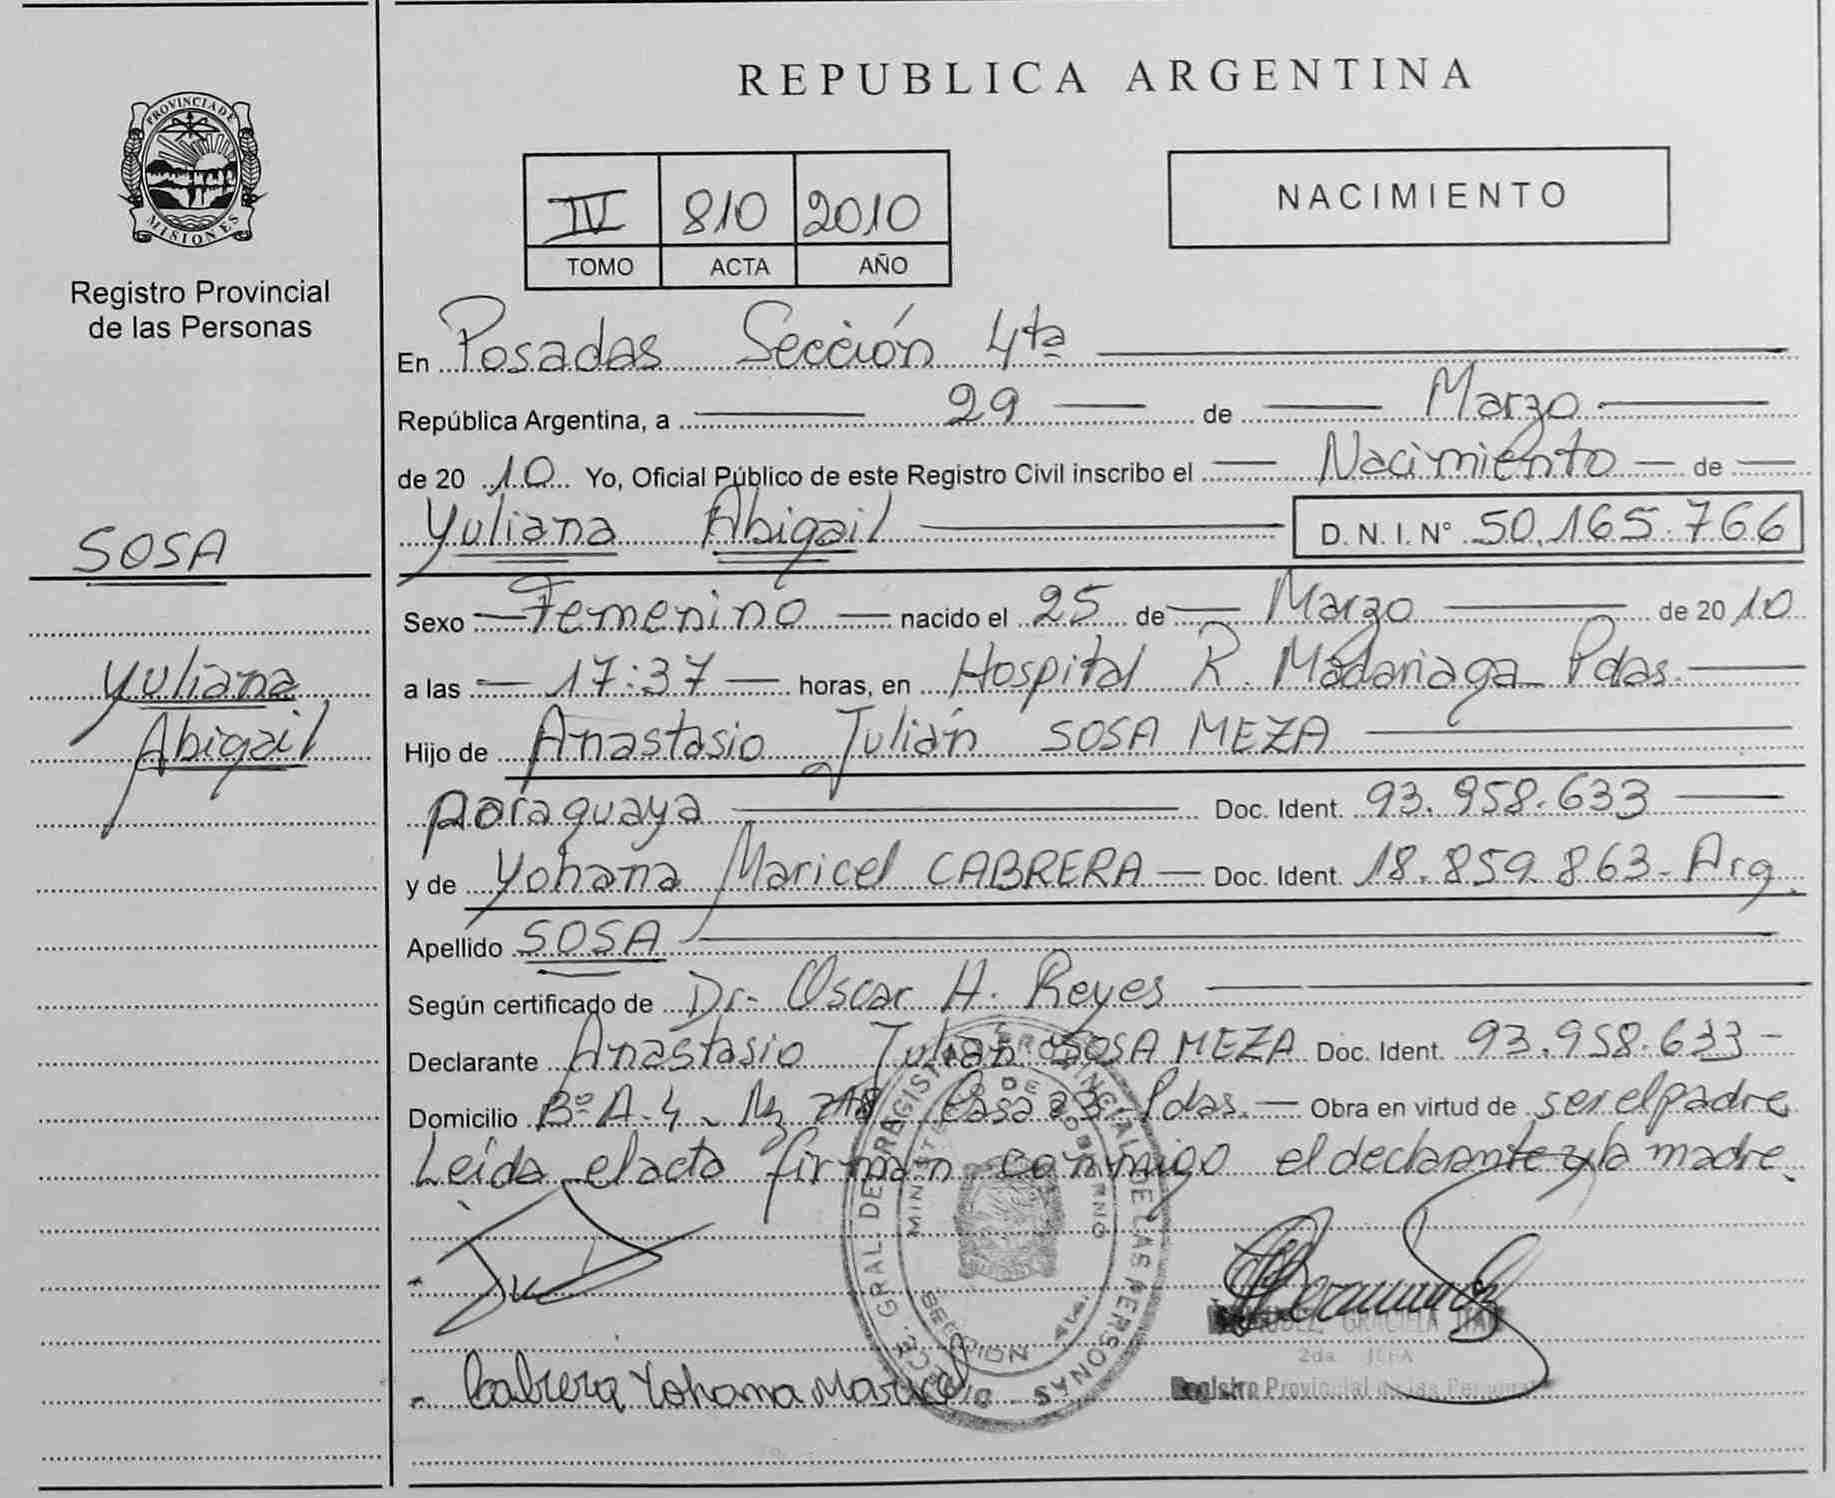 PROVINCIA DE
MISIONES
Registro Provincial
de las Personas
SOSA
Yuliana
Abigail
REPUBLICA ARGENTINA
IV 810 2010
TOMO ACTA AÑO
NACIMIENTO
En Posadas Sección 4ta
República Argentina, a 29 de Marzo
de 20 10 Yo, Oficial Público de este Registro Civil inscribo el Nacimiento de
Yuliana Abigail D. N. I. N° 50.165.766
Sexo Femenino nacido el 25 de Marzo de 20 10
a las 17:37 horas, en Hospital R. Madariaga Pdas.
Hijo de Anastasio Julián SOSA MEZA
paraguaya Doc. Ident. 93.958.633
y de Yohana Maricel CABRERA Doc. Ident. 18.859.863- Arg.
Apellido SOSA
Según certificado de Dr. Oscar H. Reyes
Declarante Anastasio Julián SOSA MEZA Doc. Ident. 93.958.633-
Domicilio B° A-4 Mz Casa Pdas. Obra en virtud de ser el padre
Leída el acta firman conmigo el declarante y la madre.
DE LAS PERSONAS
SECCION
GRACIELA
2da JEFA
Registro Provincial de las Personas
Cabrera Yohana Maricel